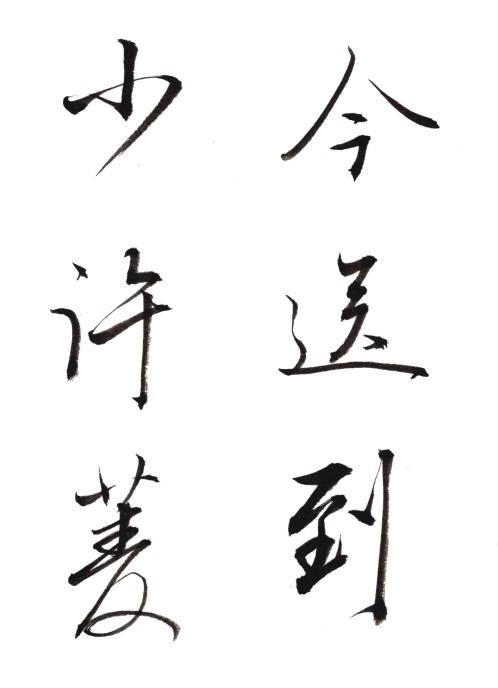 今送到
少许菱